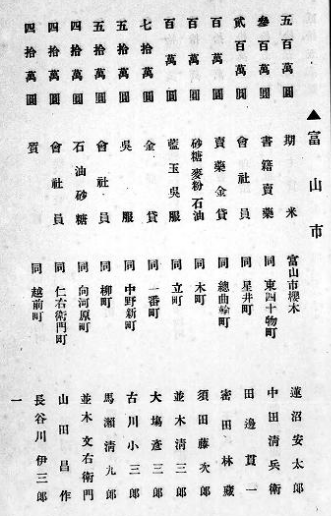 ▲富山市
五百萬圓 期米 富山市櫻木 蓮沼安太郎
參百萬圓 書籍賣藥 同東四十物町 中田清兵衛
貳百萬圓 會社員 同星井町 田邊貫一
百萬圓 賣藥金貸 同總曲輪町 密田林藏
百萬圓 砂糖麥粉石油 同木町 須田藤次郎
百萬圓 藍玉吳服 同立町 並木清三郎
七拾萬圓 金貸 同一番町 大塲彥三郎
五拾萬圓 吳服 同中野新町 古川小三郎
五拾萬圓 會社員 同柳町 馬瀨清九郎
四拾萬圓 石油砂糖 同向河原町 並木文右衛門
四拾萬圓 會社員 同仁右衛門町 山田昌作
四拾萬圓 質 同越前町 長谷川伊三郎
一